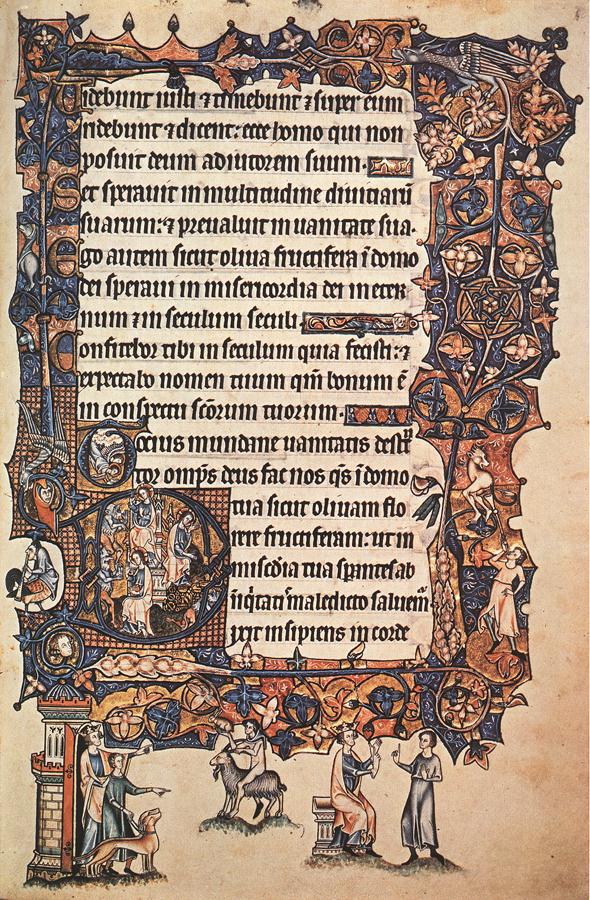 Uidebunt iusti ⁊ timebunt ⁊ super eum
ridebunt ⁊ dicent: ecce homo qui non
posuit deum adiutorem suum.
Set sperauit in multitudine diuitiarū
suarum: ⁊ preualuit in uanitate sua.
Ego autem sicut oliua fructifera ī domo
dei speraui in misericordia dei in eter
num ⁊ in seculum seculi.
Confitebor tibi in seculum quia fecisti: ⁊
expectabo nomen tuum qm̄ bonum ē
in conspectu scōrum tuorum.
mundane uanitatis
omp̄s deus fac nos q̄s ī domo
tua sicut oliuam flo
rere fructiferam: ut in
misc̄dia tua sp̄antes ab
maledicto saluem̄.
Dixit insipiens in corde